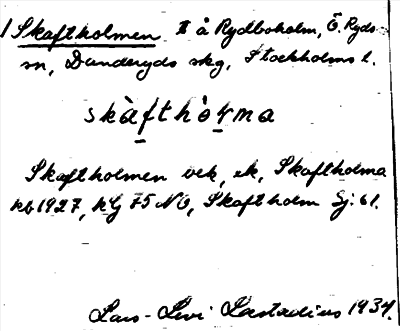 1 Skaftholmen II å Rydboholm, Ö. Ryds
sn, Danderyds skg, Stockholms l.
skàfthòrma
Skaftholmen vek, ek, Skaftholma
kb 1927, kG 75 NO, Skaftholm Sj: 61.
Lars-Levi Læstadius 1934.